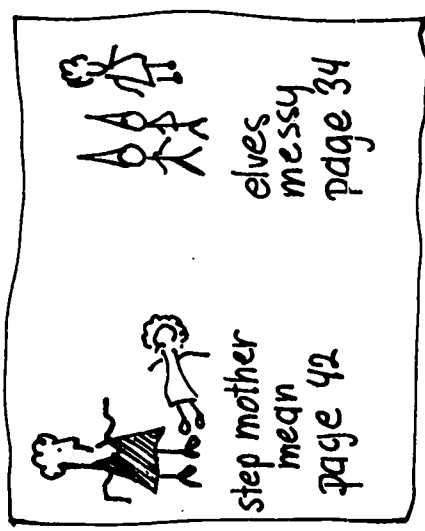 step mother
mean
page 42
elves
messy
page 34